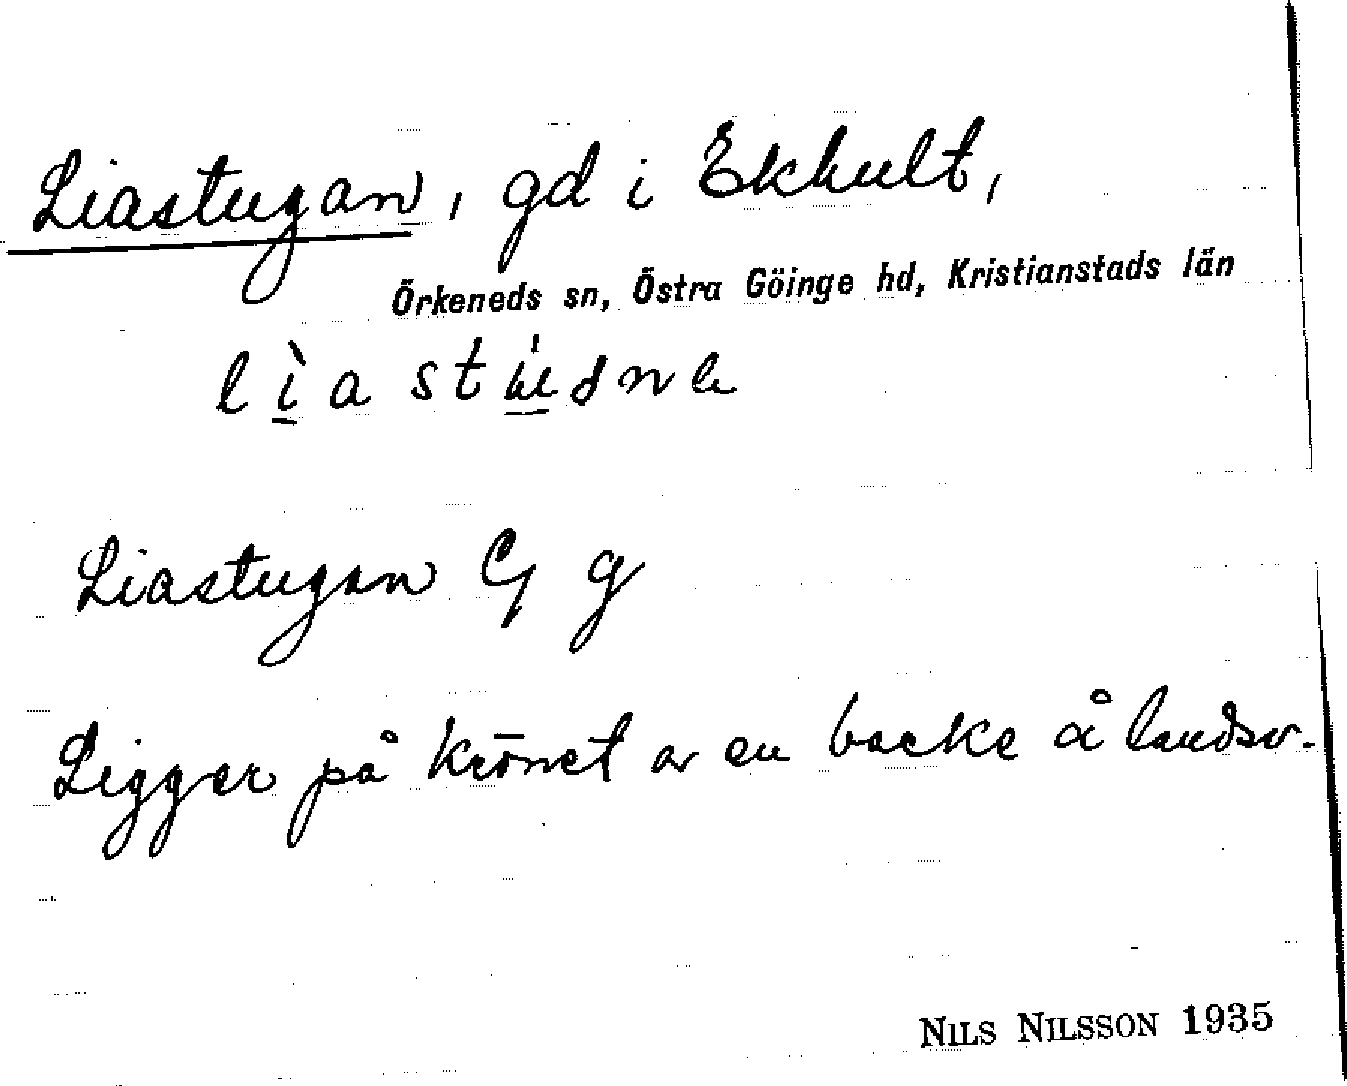 Liastugan, gd i Ekhult,
Örkeneds sn, Östra Göinge hd, Kristianstads län
Liastugan G g
Ligger på krönet av en backe å landsv.
NILS NILSSON 1935